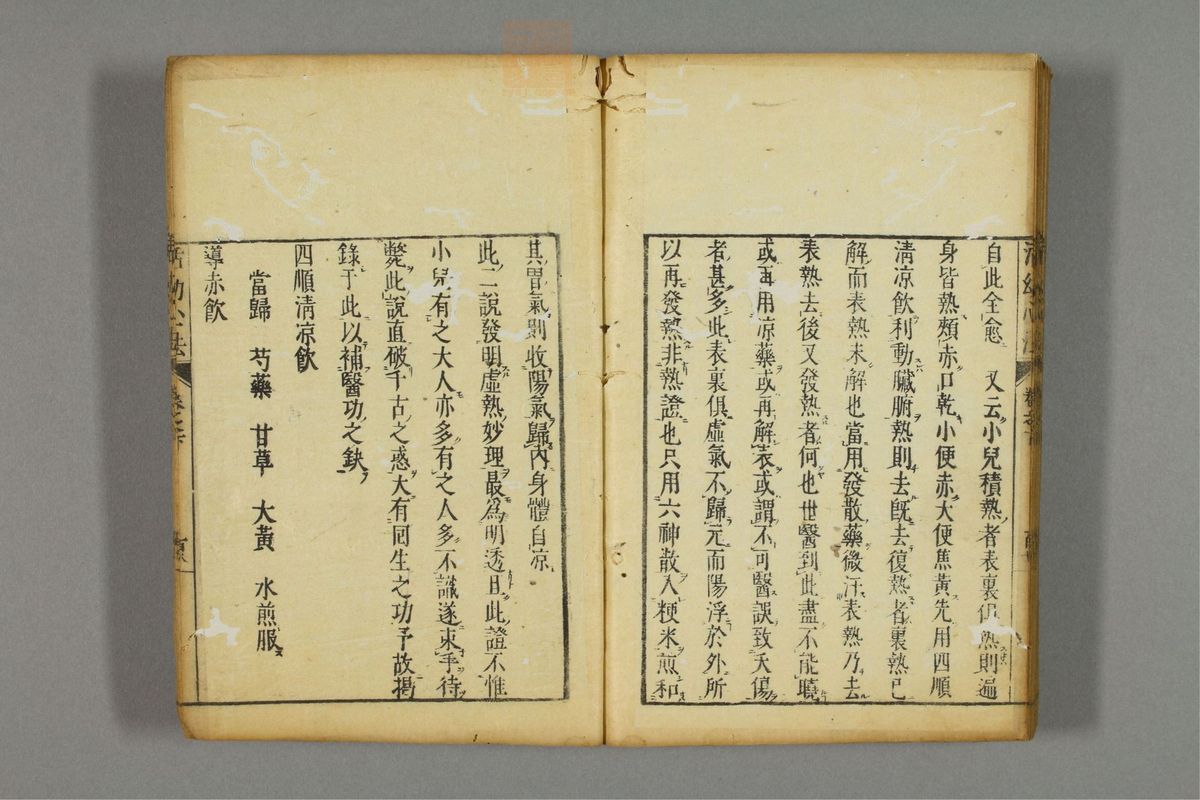 活幼心法 卷之六
自此全愈 又云小兒積熱者表裏俱熱則遍
身皆熱頰赤口乾小便赤大便焦黃先用四順
清凉飲利動臟腑熱則去旣去復熱者裏熱已
解而表熱未解也當用發散藥微汗表熱乃去
表熱去後又發熱者何也世醫到此盡不能曉
或再用凉藥或再解表或謂不可醫誤致夭傷
者甚多此表裏俱虛氣不歸元而陽浮於外所
以再發熱非熱證也只用六神散入粳米煎和
其胃氣則收陽氣歸內身體自凉
此二說發明虛熱妙理最爲明透且此證不惟
小兒有之大人亦多有之人多不識遂束手待
斃此說直破千古之惑大有囘生之功予故揭
錄于此以補醫功之缺
四順清凉飮
當歸 芍藥 甘草 大黃 水煎服
導赤飲
活幼心法